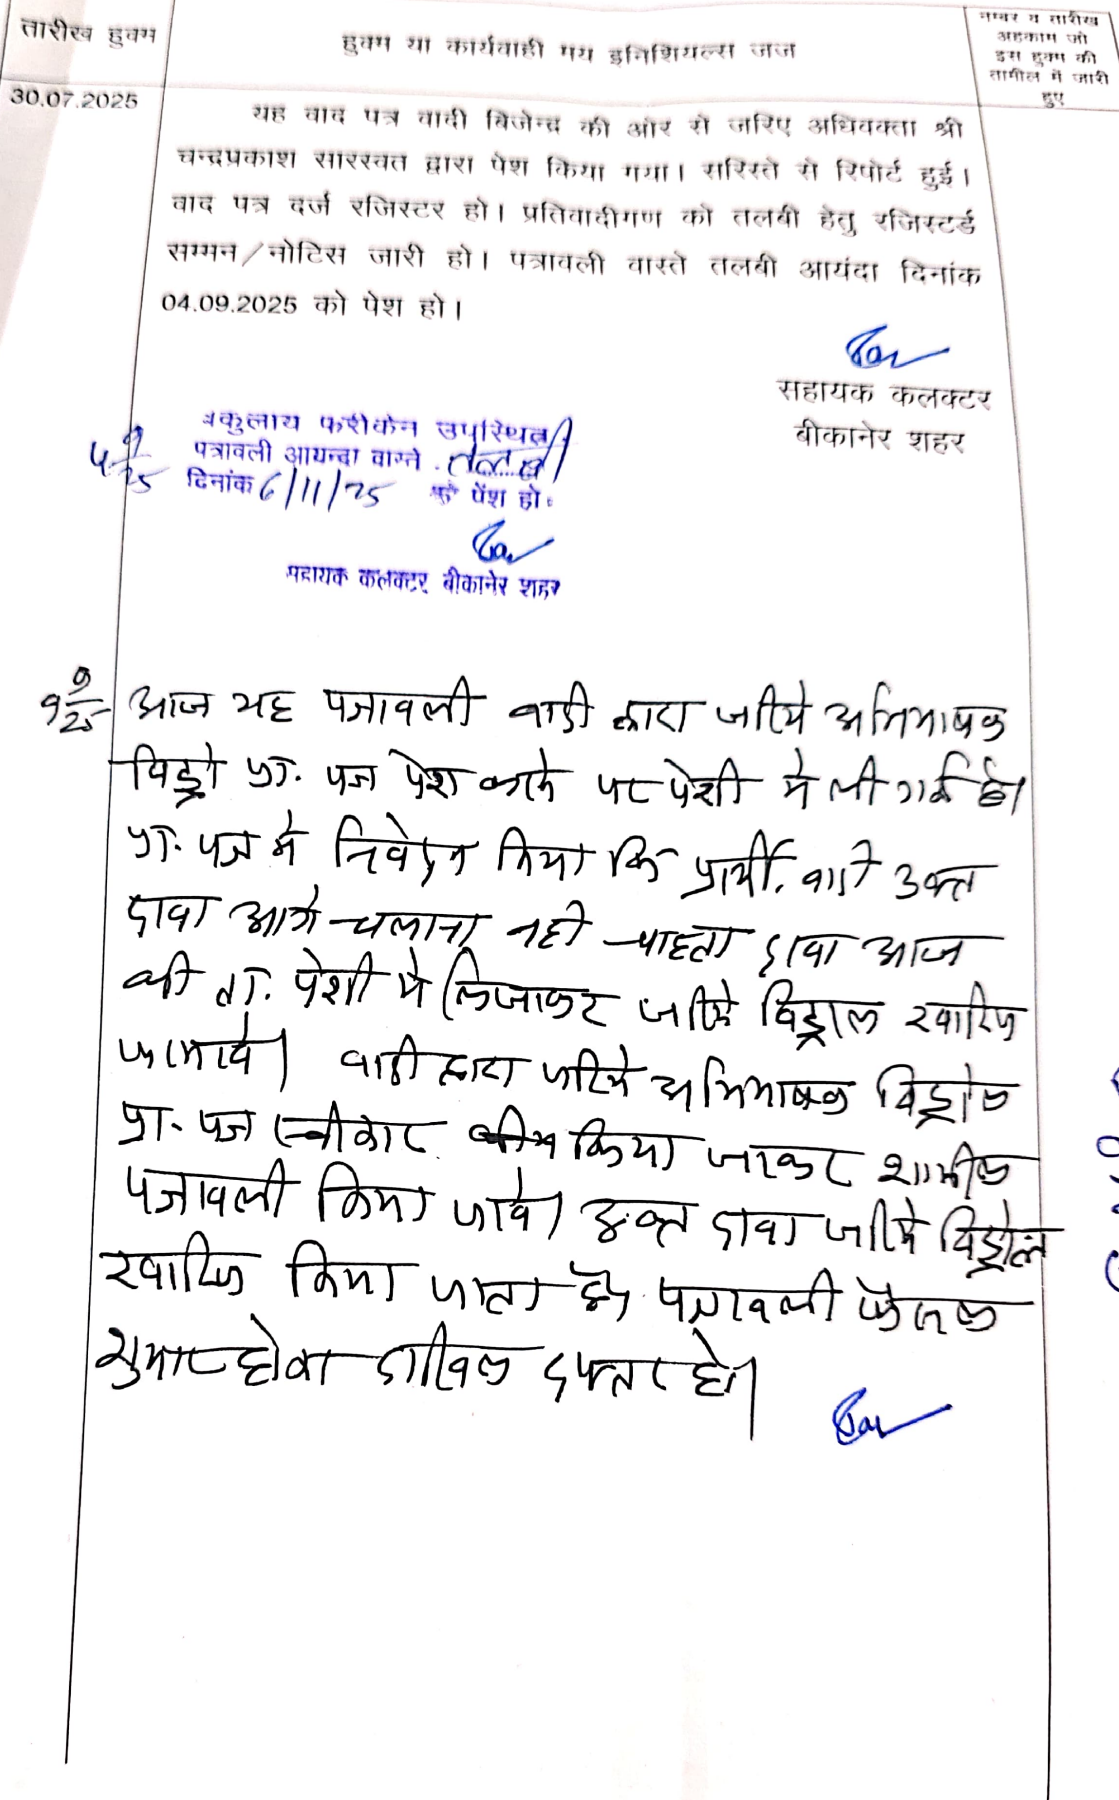 तारीख हुक्म
हुक्म या कार्यवाही मय इनिशियल्स जज
नम्बर व तारीख
अहकाम जो
इस हुक्म की
तामील में जारी
हुए
30.07.2025
यह वाद पत्र वादी बिजेन्द्र की ओर से जरिए अधिवक्ता श्री
चन्द्रप्रकाश सारस्वत द्वारा पेश किया गया। सरिस्ते से रिपोर्ट हुई।
वाद पत्र दर्ज रजिस्टर हो। प्रतिवादीगण को तलबी हेतु रजिस्टर्ड
सम्मन/नोटिस जारी हो। पत्रावली वास्ते तलबी आयंदा दिनांक
04.09.2025 को पेश हो।
सहायक कलक्टर
बीकानेर शहर
4/9/25
वकुलाय फरीकेन उपस्थित
पत्रावली आयन्दा वास्ते तलबी
दिनांक 6/11/25 को पेंश हो।
सहायक कलक्टर बीकानेर शहर
9/9/25
आज यह पत्रावली वादी द्वारा जरिये अभिभाषक
विड्रो प्रा. पत्र पेश करने पर पेशी मे ली गई है।
प्रा. पत्र मे निवेदन किया कि प्रार्थी. वादी उक्त
दावा आगे चलाना नही चाहता दावा आज
की ता. पेशी मे लिजाकर जरिये विड्राल खारिज
फरमावे। वादी द्वारा जरिये अभिभाषक विड्रोल
प्रा. पत्र स्वीकार किया जाकर शामील
पत्रावली किया जावे। उक्त दावा जरिये विड्रोल
खारिज किया जाता है। पत्रावली फैसल
शुमार होकर दाखिल दफ्तर हो।